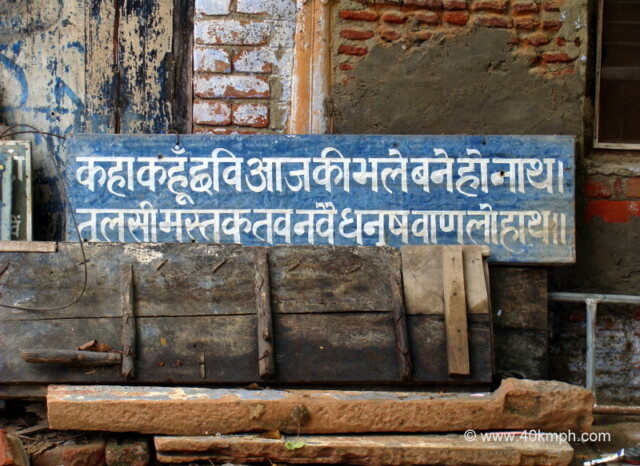 कहा कहूँ छवि आज की भले बने हो नाथ।
तुलसी मस्तक तव नवै धनुष वाण लो हाथ॥
© www.40kmph.com